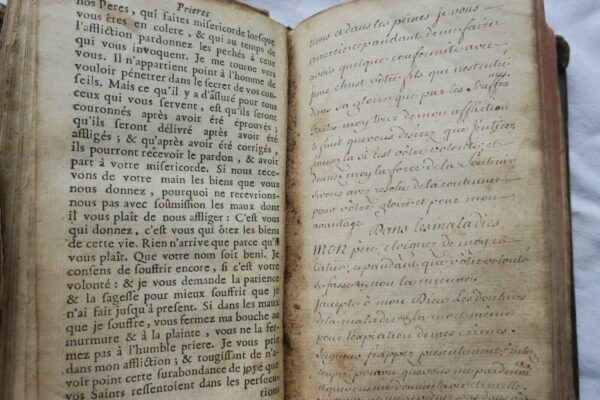 Prieres
nos Peres, qui faites misericorde lorsque
vous êtes en colere, & qui au temps de
l'affliction pardonnez les pechés à ceux
qui vous invoquent. Je me tourne vers
vous. Il n'appartient point à l'homme de
vouloir pénetrer dans le secret de vos con-
seils. Mais ce qu'il y a d'assuré pour tous
ceux qui vous servent, est qu'ils seront
couronnés après avoir été éprouvés;
qu'ils seront délivré après avoir été
affligés; & qu'après avoir été corrigés,
ils pourront recevoir le pardon, & avoir
part à votre misericorde. Si nous rece-
vons de votre main les biens que vous
nous donnez, pourquoi ne recevrions-
nous pas avec soumission les maux dont
il vous plaît de nous affliger: C'est vous
qui donnez, c'est vous qui ôtez les biens
de cette vie. Rien n'arrive que parce qu'il
vous plaît. Que votre nom soit beni. Je
consens de souffrir encore, si c'est votre
volonté: & je vous demande la patience
& la sagesse pour mieux souffrir que je
n'ai fait jusqu'à present. Si dans les maux
que je souffre, vous fermez ma bouche au
murmure & à la plainte, vous ne la fer-
mez pas à l'humble priere. Je vous prie
dans mon affliction; & rougissant de n'a-
voir point cette surabondance de joye que
vos Saints ressentoient dans les persecu-
tions
tions a dans les peines je vous
remercie cependant de me faire
avoir quelque conformité avec
jesus christ votre fils qui n'est entré
dans sa gloire que par les souffra
faites moy tirer de mon affliction
le fruit que vous desirez que j'en tire,
si c'est votre volonté, et
donnez moy la force de la soutenir
si vous avez resolu de la continuer
pour votre gloire et pour mon
avantage Dans les maladies
MON pere, eloignez de moy ce
calice, cependant que votre volonté
se fasse, et non la mienne.
j'accepte ô mon Dieu les douleurs
de la maladie, et la mort même
pour l'expiation de mes crimes.
Seigneur frappez presentement,
coupez, pourvû que vous me pardonniez
que vous me donniez la vie eternelle